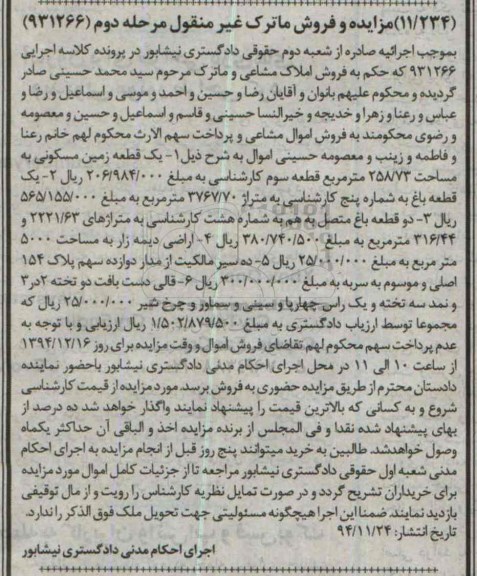 (۱۱/۲۳۴)مزایده و فروش ماترک غیر منقول مرحله دوم (۹۳۱۲۶۶)
بموجب اجرائیه صادره از شعبه دوم حقوقی دادگستری نیشابور در پرونده کلاسه اجرایی
۹۳۱۲۶۶ که حکم به فروش املاک مشاعی و ماترک مرحوم سید محمد حسینی صادر
گردیده و محکوم علیهم بانوان و آقایان رضا و حسین و احمد و موسی و اسماعیل و رضا و
عباس و رعنا و زهرا و خدیجه و خیرالنسا حسینی و قاسم و اسماعیل و حسین و معصومه
و رضوی محکومند به فروش اموال مشاعی و پرداخت سهم الارث محکوم لهم خانم رعنا
و فاطمه و زینب و معصومه حسینی اموال به شرح ذیل۱- یک قطعه زمین مسکونی به
مساحت ۲۵۸/۷۳ مترمربع قطعه سوم کارشناسی به مبلغ ۲۰۶/۹۸۴/۰۰۰ ریال ۲- یک
قطعه باغ به شماره پنج کارشناسی به متراژ ۳۷۶۷/۷۰ مترمربع به مبلغ ۵۶۵/۱۵۵/۰۰۰
ریال ۳- دو قطعه باغ متصل به هم به شماره هشت کارشناسی به متراژهای ۲۲۲۱/۶۳ و
۳۱۶/۴۴ مترمربع به مبلغ ۳۸۰/۷۴۰/۵۰۰ ریال ۴- اراضی دیمه زار به مساحت ۵۰۰۰
متر مربع به مبلغ ۲۵/۰۰۰/۰۰۰ ریال ۵- ده سیر مالکیت از مدار دوازده سهم پلاک ۱۵۴
اصلی و موسوم به سربه به مبلغ ۳۰۰/۰۰۰/۰۰۰ ریال ۶- قالی دست بافت دو تخته ۲در۳
و نمد سه تخته و یک راس چهارپا و سینی و سماور و چرخ شیر ۲۵/۰۰۰/۰۰۰ ریال که
مجموعا توسط ارزیاب دادگستری به مبلغ ۱/۵۰۲/۸۷۹/۵۰۰ ریال ارزیابی و با توجه به
عدم پرداخت سهم محکوم لهم تقاضای فروش اموال و وقت مزایده برای روز ۱۳۹۴/۱۲/۱۶
از ساعت ۱۰ الی ۱۱ در محل اجرای احکام مدنی دادگستری نیشابور باحضور نماینده
دادستان محترم از طریق مزایده حضوری به فروش برسد. مورد مزایده از قیمت کارشناسی
شروع و به کسانی که بالاترین قیمت را پیشنهاد نمایند واگذار خواهد شد ده درصد از
بهای پیشنهاد شده نقدا و فی المجلس از برنده مزایده اخذ و الباقی آن حداکثر یکماه
وصول خواهدشد. طالبین به خرید میتوانند پنج روز قبل از انجام مزایده به اجرای احکام
مدنی شعبه اول حقوقی دادگستری نیشابور مراجعه تا از جزئیات کامل اموال مورد مزایده
برای خریداران تشریح گردد و در صورت تمایل نظریه کارشناس را رویت و از مال توقیفی
بازدید نمایند. ضمنا این اجرا هیچگونه مسئولیتی جهت تحویل ملک فوق الذکر را ندارد.
تاریخ انتشار: ۹۴/۱۱/۲۴
اجرای احکام مدنی دادگستری نیشابور